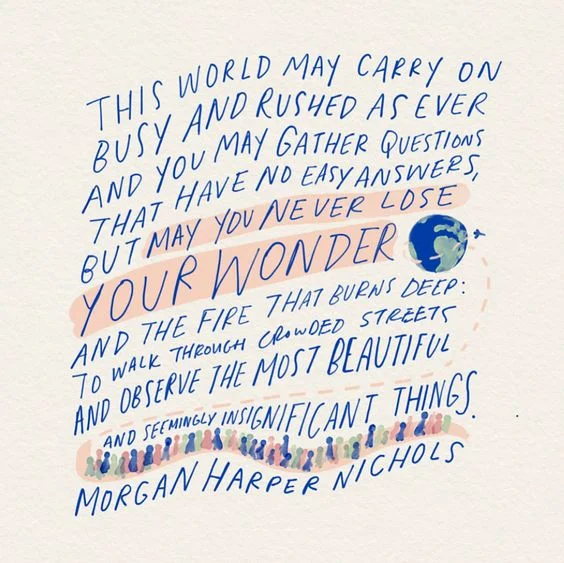 THIS WORLD MAY CARRY ON
BUSY AND RUSHED AS EVER
AND YOU MAY GATHER QUESTIONS
THAT HAVE NO EASY ANSWERS,
BUT MAY YOU NEVER LOSE
YOUR WONDER
AND THE FIRE THAT BURNS DEEP:
TO WALK THROUGH CROWDED STREETS
AND OBSERVE THE MOST BEAUTIFUL
AND SEEMINGLY INSIGNIFICANT THINGS.
MORGAN HARPER NICHOLS